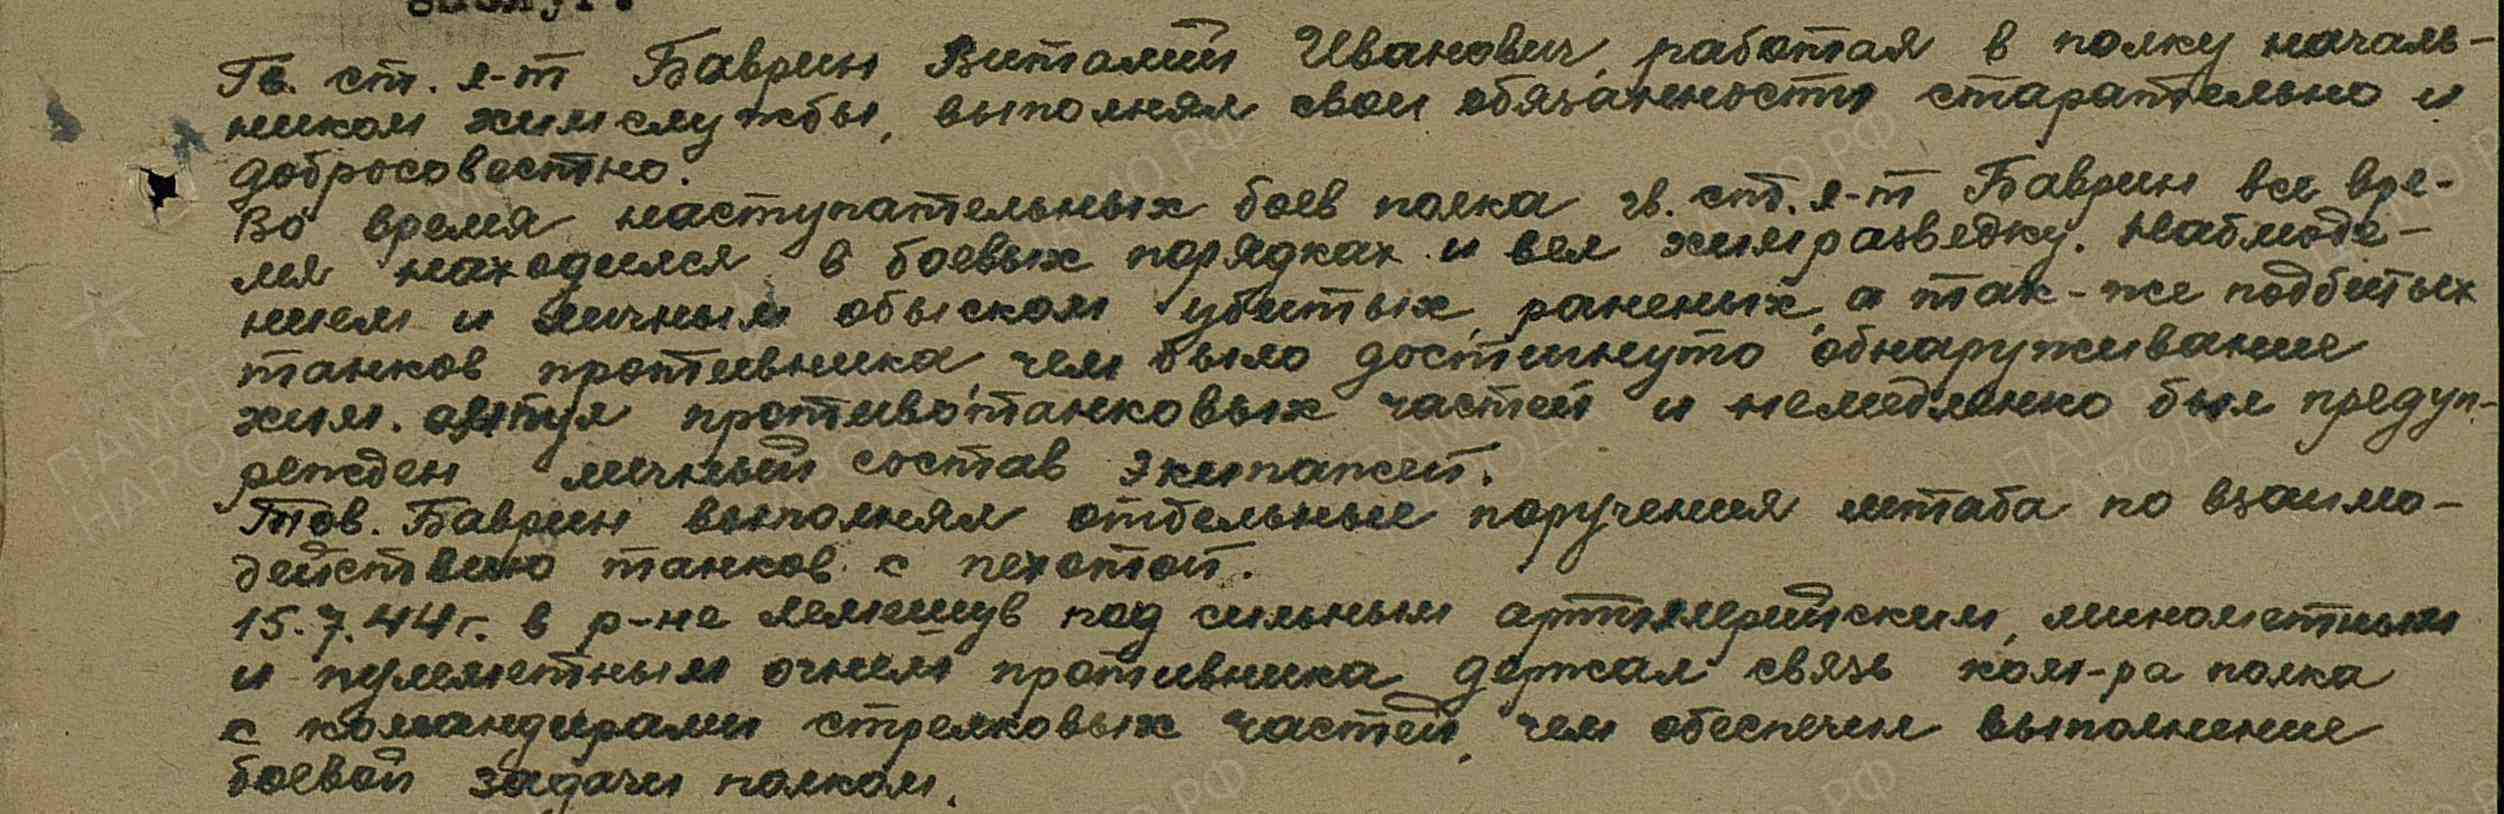 заслуг.
Гв. ст. л-т Баврин Виталий Иванович, работая в полку началь-
ником химслужбы, выполнял свои обязанности старательно и
добросовестно.
Во время наступательных боев полка гв. ст. л-т Баврин все вре-
мя находился в боевых порядках и вел химразведку. Наблюде-
нием и личным обыском убитых, раненых, а так-же подбитых
танков противника, чем было достигнуто обнаруживание
хим. противотанковых частей и немедленно был предуп-
режден личный состав экипажей.
Тов. Баврин выполнял отдельные поручения штаба по взаимо-
действию танков с пехотой.
15.7.44г. в р-не под сильным артиллерийским, минометным
и пулеметным огнем противника держал связь ком-ра полка
с командирами стрелковых частей, чем обеспечил выполнение
боевой задачи полком.